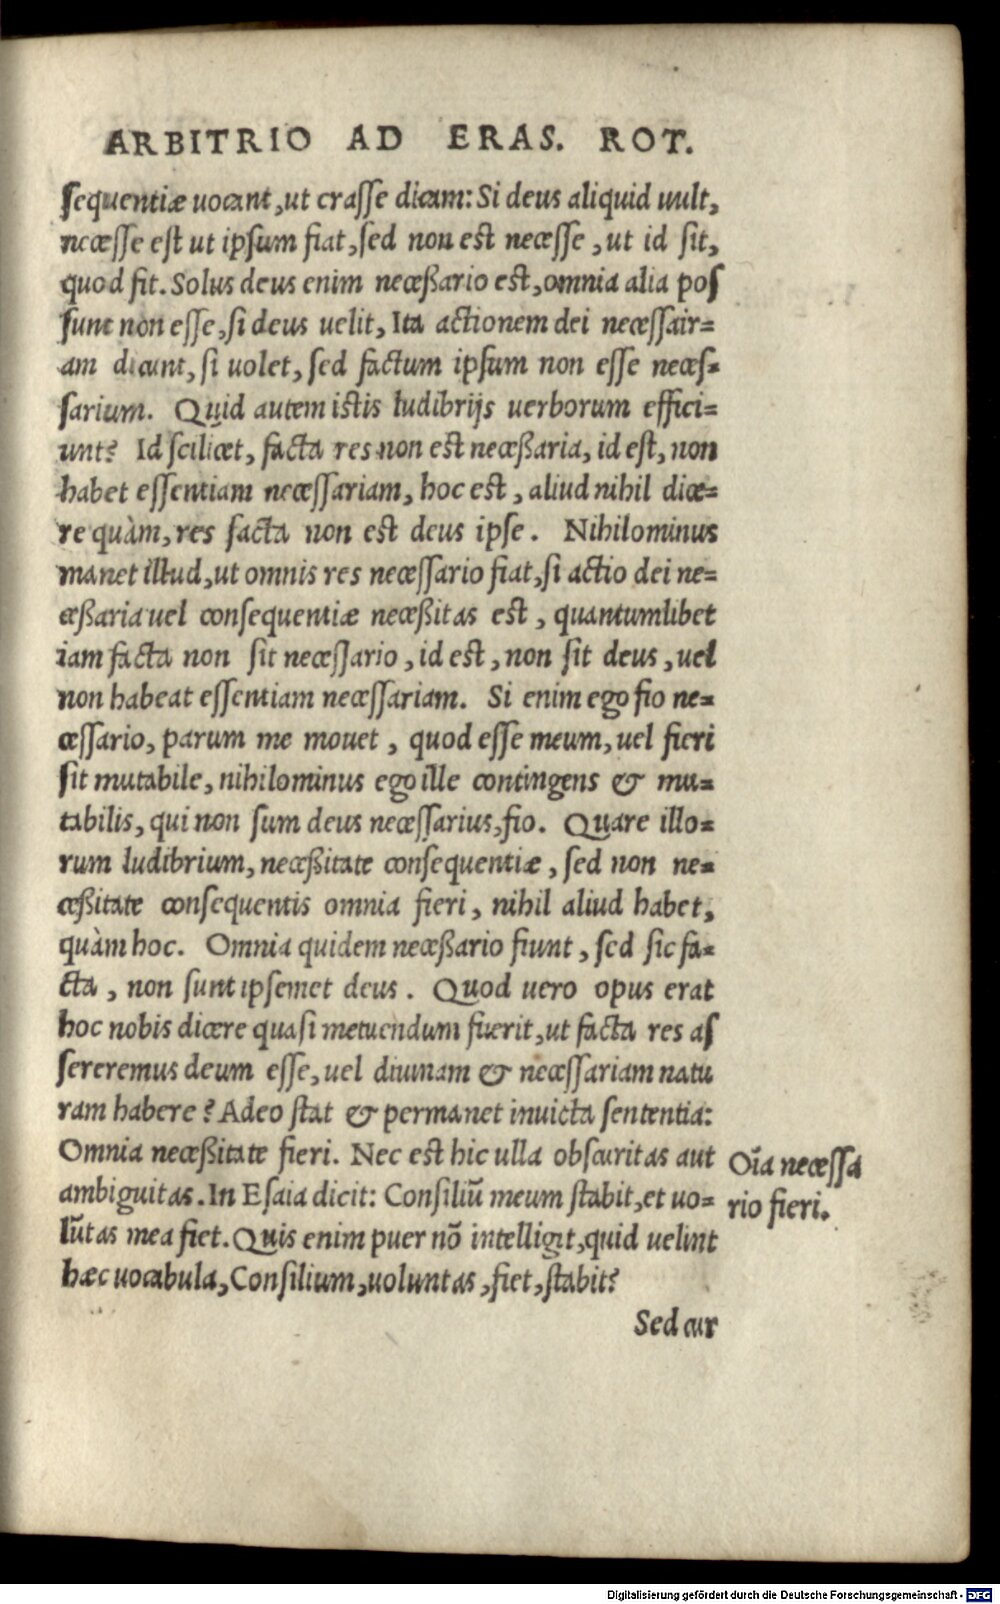 ARBITRIO AD ERAS. ROT.
sequentiæ uocant, ut crasse dicam: Si deus aliquid uult,
necesse est ut ipsum fiat, sed non est necesse, ut id sit,
quod fit. Solus deus enim neceßario est, omnia alia pos
sunt non esse, si deus uelit, Ita actionem dei necessair=
am dicunt, si uolet, sed factum ipsum non esse neces=
sarium. Quid autem istis ludibrijs uerborum effici=
unt? Id scilicet, facta res non est neceßaria, id est, non
habet essentiam necessariam, hoc est, aliud nihil dice=
re quàm, res facta non est deus ipse. Nihilominus
manet illud, ut omnis res necessario fiat, si actio dei ne=
ceßaria uel consequentiæ neceßitas est, quantumlibet
iam facta non sit necessario, id est, non sit deus, uel
non habeat essentiam necessariam. Si enim ego fio ne=
cessario, parum me mouet, quod esse meum, uel fieri
sit mutabile, nihilominus ego ille contingens & mu=
tabilis, qui non sum deus necessarius, fio. Quare illo=
rum ludibrium, neceßitate consequentiæ, sed non ne=
ceßitate consequentis omnia fieri, nihil aliud habet,
quàm hoc. Omnia quidem neceßario fiunt, sed sic fa=
cta, non sunt ipsemet deus. Quod uero opus erat
hoc nobis dicere quasi metuendum fuerit, ut facta res as
sereremus deum esse, uel diuinam & necessariam natu
ram habere? Adeo stat & permanet inuicta sententia:
Omnia neceßitate fieri. Nec est hic ulla obscuritas aut
ambiguitas. In Esaia dicit: Consiliū meum stabit, et uo=
lūtas mea fiet. Quis enim puer nō intelligit, quid uelint
hæc uocabula, Consilium, uoluntas, fiet, stabit?
Sed cur
Oīa necessa
rio fieri.
Digitalisierung gefördert durch die Deutsche Forschungsgemeinschaft - DFG